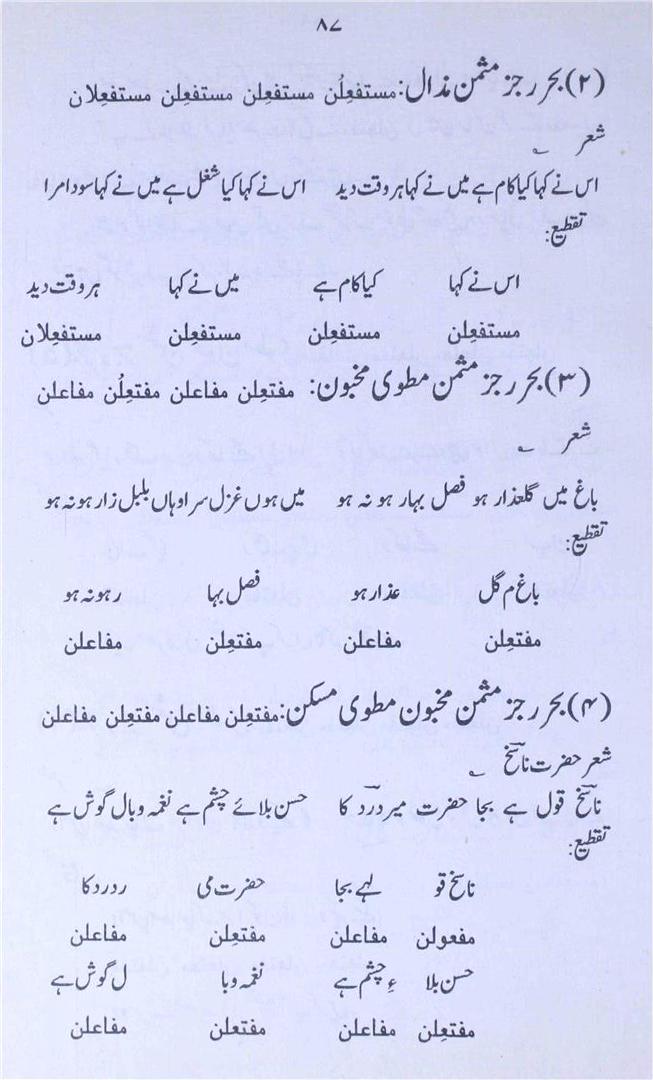 ۸۷
(۲) بحر رجز مثمن مذال: مستفعِلُن مستفعِلن مستفعِلن مستفعِلان
شعر
اس نے کہا کیا کام ہے میں نے کہا ہر وقت دید اس نے کہا کیا شغل ہے میں نے کہا سودا مرا
تقطیع:
اس نے کہا کیا کام ہے میں نے کہا ہر وقت دید
مستفعِلن مستفعِلن مستفعِلن مستفعِلان
(۳) بحر رجز مثمن مطوی مخبون: مفتعِلن مفاعلن مفتعِلُن مفاعلن
شعر
باغ میں گلعذار ہو فصل بہار ہو نہ ہو میں ہوں غزل سرا وہاں بلبل زار ہو نہ ہو
تقطیع:
باغ م گل عذار ہو فصل بہا ر ہو نہ ہو
مفتعِلن مفاعلن مفتعِلن مفاعلن
(۴) بحر رجز مثمن مخبون مطوی مسکن: مفتعِلن مفاعلن مفتعِلن مفاعلن
شعر حضرت ناسخؔ
ناسخؔ قول ہے بجا حضرت میر دردؔ کا حسن بلائے چشم ہے نغمہ وبال گوش ہے
تقطیع:
ناسخ قو لہے بجا حضرت می ر درد کا
مفعولن مفاعلن مفتعِلن مفاعلن
حسن بلا ءِ چشم ہے نغمہ وبا ل گوش ہے
مفتعِلن مفاعلن مفتعلن مفاعلن